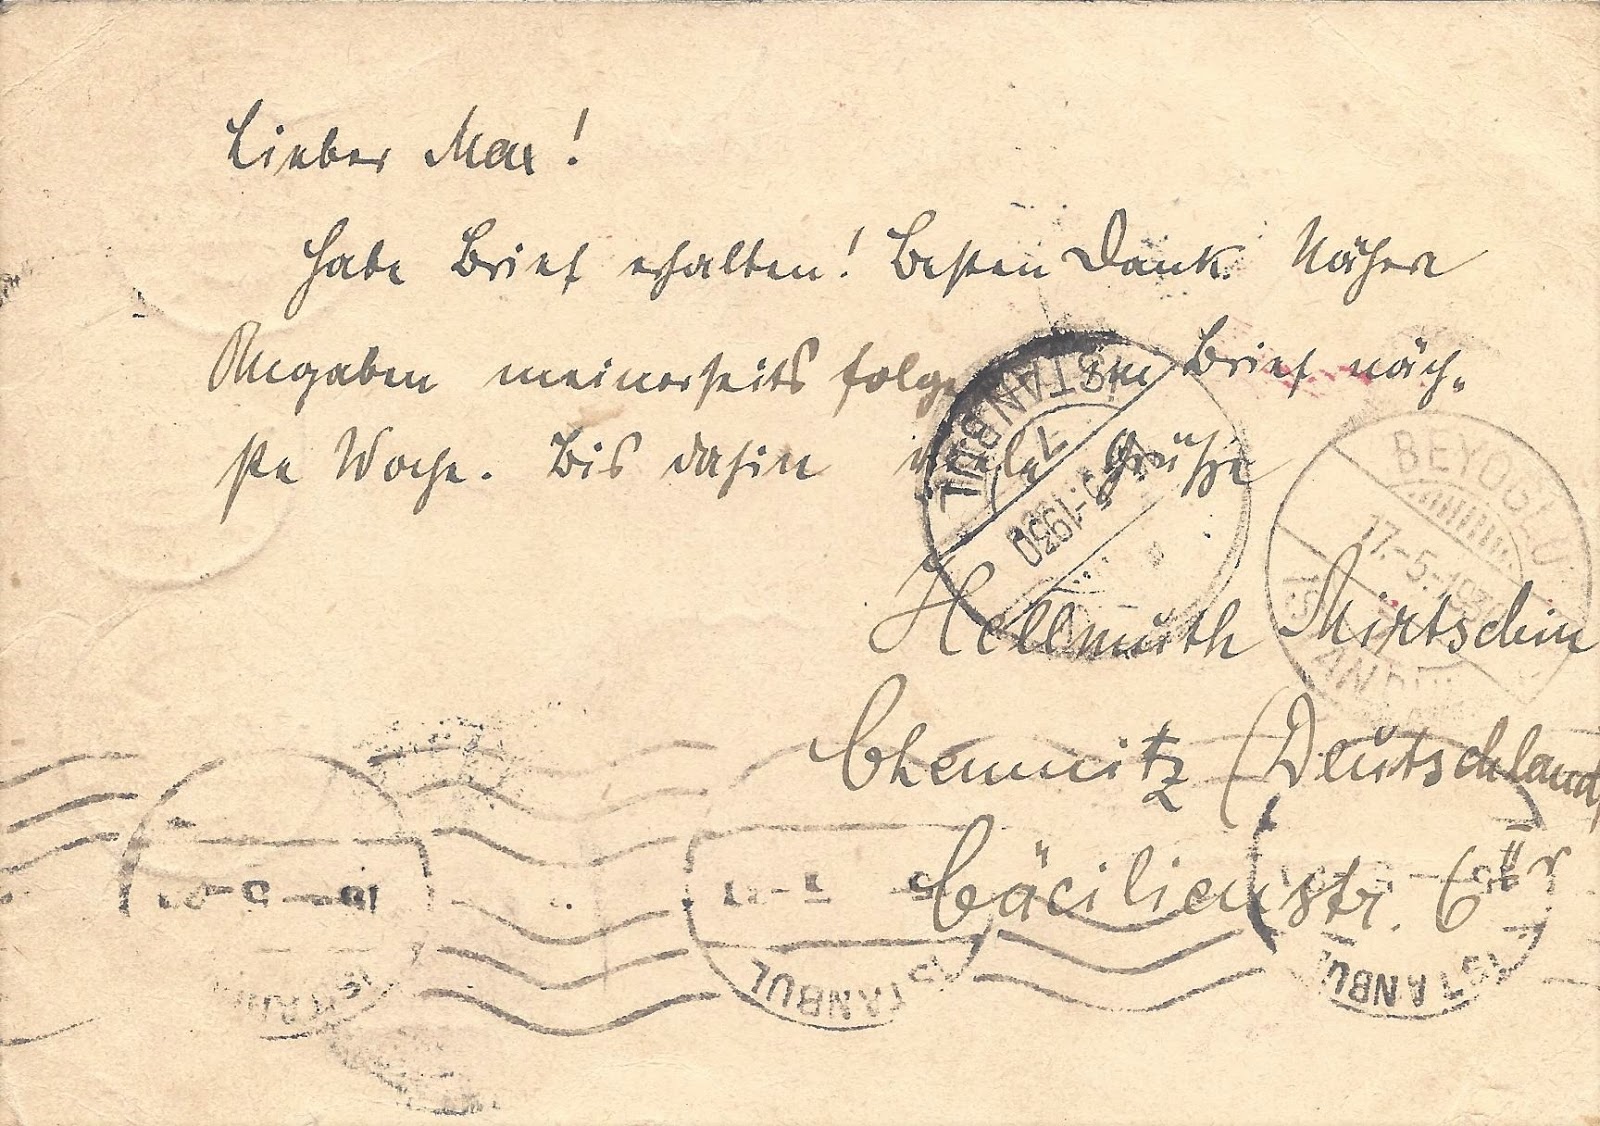 Lieber Max!
Habe Brief erhalten! Besten Dank. Nähere
Angaben meinerseits folgen im Brief näch-
ste Woche. Bis dahin viele Grüße
Hellmuth Mirtschin
Chemnitz (Deutschland)
Cäcilienstr. 6 II r
ISTANBUL
7
5-1930
BEYOĞLU
17-5-1930
ISTANBUL
ISTANBUL
ISTANBUL
ISTANBUL